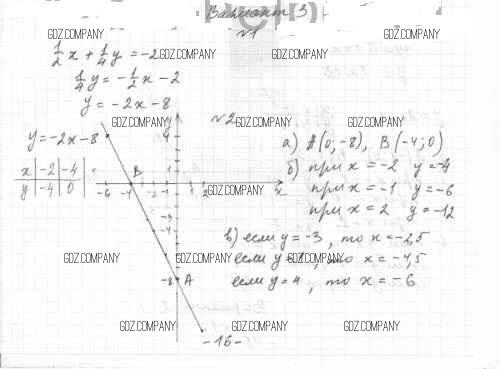 Вариант 3
GDZ.COMPANY GDZ.COMPANY
№1
1/2 x + 1/4 y = -2
GDZ.COMPANY GDZ.COMPANY
1/4 y = -1/2 x - 2
y = -2x - 8
№2
GDZ.COMPANY GDZ.COMPANY
y = -2x - 8
а) A(0; -8), B(-4; 0)
x | -2 | -4
y | -4 | 0
B
-6 -4 -2 1 2 x
GDZ.COMPANY
б) при x = -2 y = -4
при x = -1 y = -6
при x = 2 y = -12
-3
-4
в) если y = -3, то x = -2,5
GDZ.COMPANY GDZ.COMPANY GDZ.COMPANY
если y = 1, то x = -4,5
-8 A
если y = 4, то x = -6
GDZ.COMPANY GDZ.COMPANY
-16-